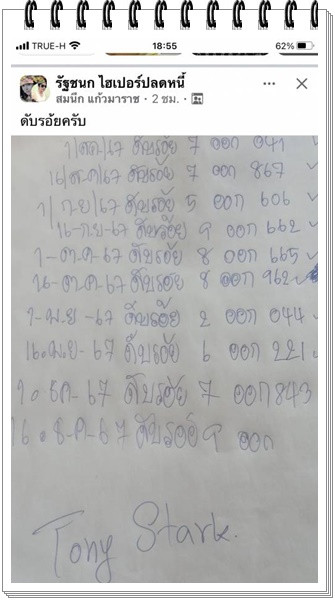 TRUE-H 18:55 62%
รัฐชนก ไฮเปอร์ปลดหนี้
สมนึก แก้วมาราช · 2 ชม. ·
ดับรอ้ยครับ
67 ดับรอ้ย 7 ออก 041
16/ส.ค/67 ดับรอ้ย 7 ออก 867
1/ก.ย/67 ดับรอ้ย 5 ออก 606
16-ก.ย-67 ดับรอ้ย 9 ออก 662
1-ต.ค-67 ดับรอ้ย 8 ออก 665
16-ต.ค-67 ดับรอ้ย 8 ออก 962
1-พ.ย-67 ดับรอ้ย 2 ออก 044
16.พ.ย-67 ดับรอ้ย 6 ออก 221
1. ธ.ค-67 ดับรอ้ย 7 ออก 843
16. ธ-ค-67 ดับรอ้ย 9 ออก
Tony Stark.